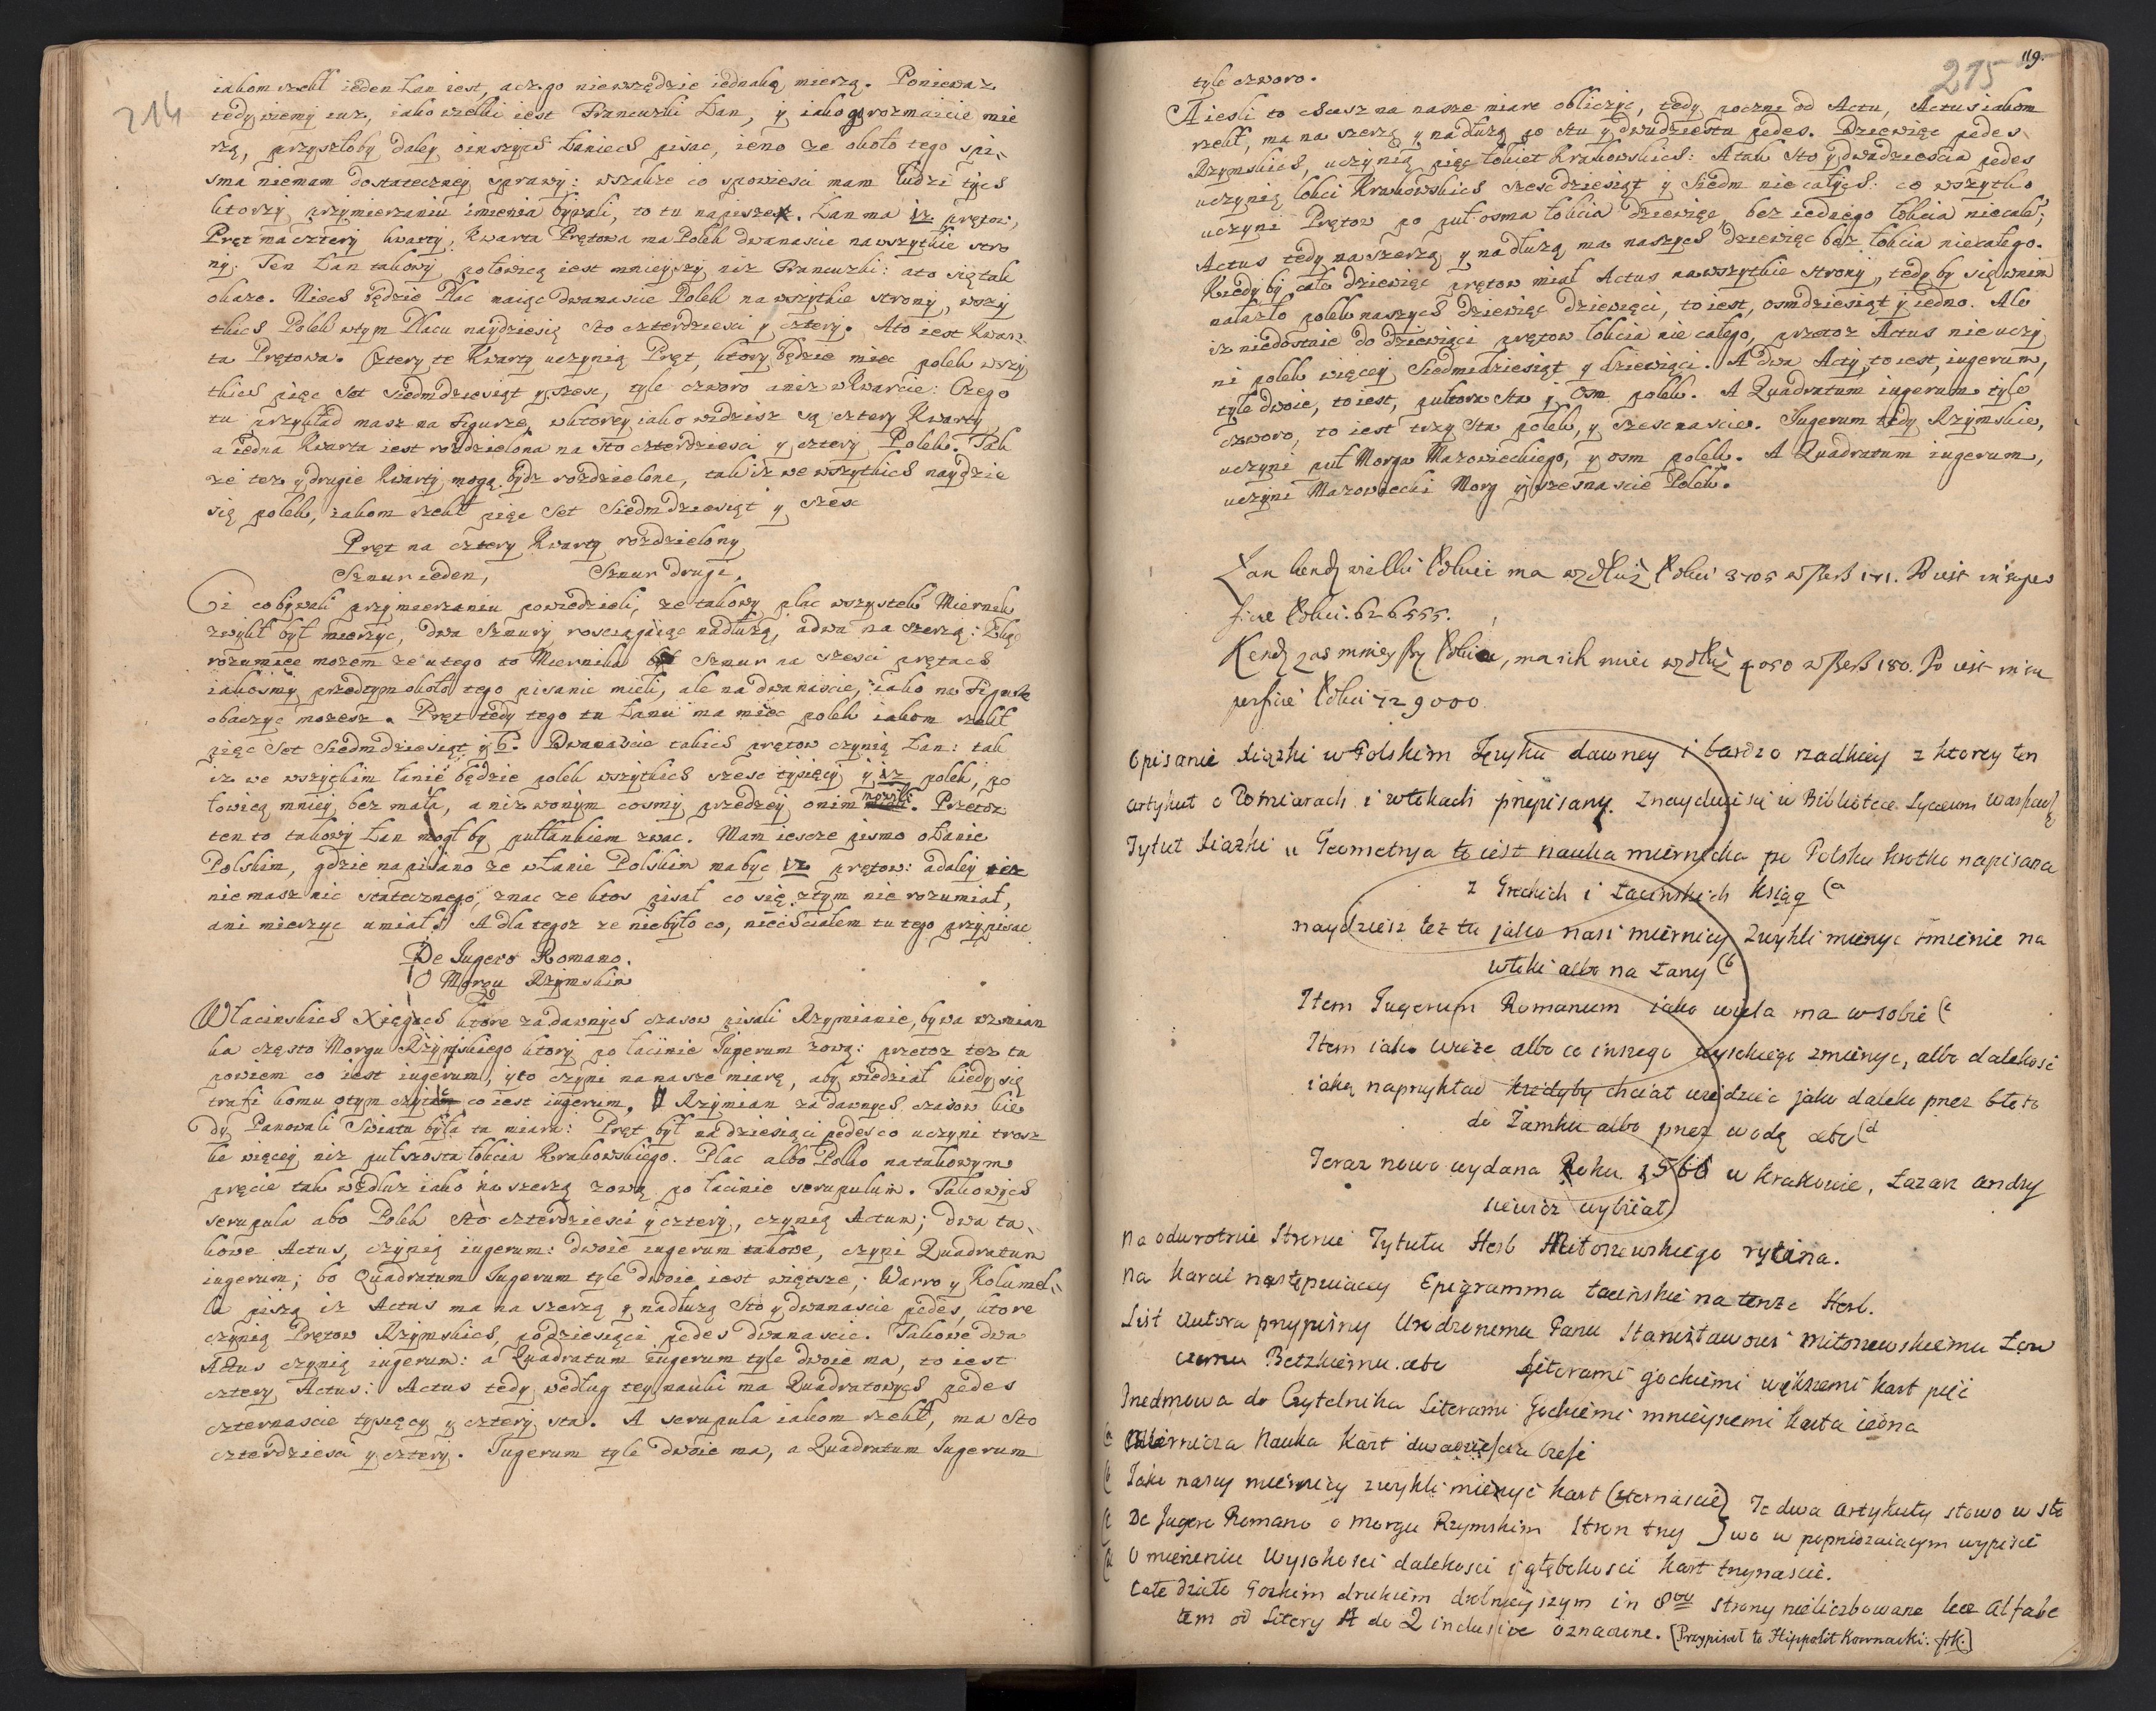 214
iakom rzekł ieden Łan iest, aczgo niewszędzie iednako mierzą. Poniewaz
tedy wiemy iuz, iako wielki iest Francuzki Łan, y iako go rozmaicie mie
rzą, przyszłoby daley oinszych Łaniech pisac, ieno ze około tego spi-
sma niemam dostateczney sprawy: wszakze co spowiesci mam ludzi tych
ktorzy przymierzaniu imienia bywali, to tu napisze. Łan ma 12 prętow,
Pręt ma cztery kwarty, Kwarta Prętowa ma Polek dwanascie na wszytkie stro
ny. Ten Łan takowy połowicą iest mnieyszy niz Francuzki: ato się tak
okaze. Niech będzie Plac maiąc dwanascie Polek na wszytkie strony, wszy
tkich Polek wtym Placu naydziesię sto czterdziesci y cztery. Ato iest Kwar-
ta Prętowa. Cztery te Kwarty uczynią Pręt, ktory będzie miec polek wszy
tkich pięc set siedmdziesiąt y szesc, tyle czworo aniz w Kwarcie: Czego
tu przykład masz na Figurze, wktorey iako widzisz są cztery Kwarty,
a iedna Kwarta iest rozdzielona na sto czterdziesci y cztery Polek. Tak
ze tez y drugie Kwarty mogą bydz rozdzielone, tak iz we wszytkich naydzie
się polek, iakom rzekł pięc set siedmdziesiąt y szesc
Pręt na cztery Kwarty rozdzielony
Sznur ieden, Sznur drugi,
Ci co bywali przy mierzaniu powiedzieli, ze takowy plac wszystek Miernik
zwykł był mierzyc, dwa Sznury rosciągaiąc nadłuzą, adwa na szerzą: Zkąd
rozumiec mozem ze utego to Miernika był Sznur na szesci prętach
iakosmy przedtym około tego pisanie mieli, ale na dwanascie, iako na Figurze
obaczyc mozesz. Pręt tedy tego tu Łanu ma miec polek iakom rzekł
pięc set siedmdziesiąt y 6. Dwanascie takich prętow czynią Łan: tak
iz we wszytkim łanie będzie polek wszytkich szesc tysięcy y 12 polek, po
łowicą mniey bez mała, a niz wonym cosmy przedzey onim mowili. Przetoz
ten to takowy Łan mogł by pułłankiem zwac. Mam iescze pismo oŁanie
Polskim, gdzie napisano ze włanie Polskim ma byc 12 prętow: adaley
nie masz nic statecznego, znac ze ktos pisał co się ztym nie rozumiał,
ani mierzyc umiał. A dla tegoz ze niebyło co, niechciałem tu tego przypisac
De Jugero Romano.
O Morgu Rzymskim
Wlacinskich Xięgach ktore za dawnych czasow pisali Rzymianie, bywa wzmian
ka często Morgu Rzymskiego ktory po łacinie Jugerum zową: przetoz tez tu
powiem co iest iugerum, yto czyni na nasze miarę, aby wiedział kiedy się
trafi komu otym czytac co iest iugerum. U Rzymian za dawnych czasow kie
dy Panowali Swiatu była ta miara: Pręt był na dziesiąci pedes co uczyni trosz
ke więcey niz puł szosta łokcia Krakowskiego. Plac albo Polko na takowym
pręcie tak wzdłuz iako na szerzą zową po łacinie scrupulum. Takowych
scrupula abo Polek sto czterdziesci y cztery, czynią Actum; dwa ta-
kowe Actus, czynią iugerum: dwoie iugerum takowe, czyni Quadratum
iugerum; bo Quadratum Jugerum tyle dwoie iest większe; Warro y Kolumel-
la piszą iz Actus ma na szerzą y nadłuzą sto y dwanascie pedes, ktore
czynią Prętow Rzymskich, podziesiąci pedes dwanascie. Takowe dwa
Actus czynią iugerum: a Quadratum iugerum tyle dwoie ma, to iest
cztery Actus: Actus tedy według tey nauki ma Quadratowych pedes
czternascie tysięcy y cztery sta. A scrupula iakom rzekł, ma sto
czterdziesci y cztery. Jugerum tyle dwoie ma, a Quadratum Jugerum
119.
215
tyle czworo.
A iesli to chcesz na nasze miare obliczyc, tedy poczni od Actu, Actus iakom
rzekł, ma na szerzą y nadłuzą po stu y dwudziestu pedes. Dziewięc pedes
Rzymskich, uczynią pięc łokiet Krakowskich: A tak sto y dwadziescia pedes
uczynią łokci Krakowskich szescdziesiąt y siedm nie całych: co wszytko
uczyni Prętow po puł osma łokcia dziewięc, bez iednego łokcia niecałe;
Actus tedy na szerzą y nadłuzą ma naszych dziewięc bez łokcia niecałego.
Kiedy by całe dziewięc prętow miał Actus na wszytkie strony, tedy by się wnim
nalazło polek naszych dziewięc dziewięci, to iest, osmdziesiąt y iedno. Ale
iz niedostaie do dziewiąci prętow łokcia nie całego, przetoz Actus nie uczy
ni polek więcey siedmdziesiąt y dziewięci. A dwa Acty, to iest, iugerum,
tyle dwoie, to iest, pułtora sta y osm polek. A Quadratum iugerum tyle
czworo, to iest trzy sta polek, y szesnascie. Jugerum tedy Rzymskie,
uczyni puł Morgu Mazowieckiego, y osm polek. A Quadratum iugerum,
uczyni Mazowiecki Morg y szesnascie Polek.
Łan kendy wielki łokcei ma wzdłuż łokci 3705 wszerz 171. To iest in supe
ficie łokci. 626555.
Kendy zas mnieyszy, ma ich miec wzdłuż 4050 wszerz 180. To iest in su
perficie łokci 729000
Opisanie xiążki w Polskim Języku dawney i bardzo rzadkiey z ktorey ten
artykuł o Pomiarach i włokach przepisany. Znayduie się w Bibliotece Lyceum Warszaws
Tytuł xiążki: Geometrya to iest nauka miernicka po Polsku krotko napisana
z Greckich i Łacinskich Ksiąg (a
naydziesz też tu jako nasi miernicy zwykli mierzyc imienie na
włoki albo na Łany (b
Item Jugerum Romanum iako wiela ma w sobie (c
Item iako wieże albo co inszego wysokiego zmierzyc, albo dalekosc
iaką naprzykład kiedyby chciał wiedziec jako daleko przez błoto
do Zamku albo przez wodę etc (d
Teraz nowo wydana Roku 1566 w Krakowie, Łazarz Andry
siewicz wybiiał
Na odwrotnei Stronie Tytułu Herb Miłoszewskiego rycina.
Na karcie następuiącey Epigramma łacinskie na tenże Herb.
List Autora przypisny Urodzonemu Panu Stanisławowi Miłoszewskiemu Łow
czemu Bełzkiemu etc Literami gockiemi większemi kart pięć
Przedmowa do Czytelnika Literami Gockiemi mnieyszemi karta iedna
(a Miernicza Nauka Kart dwadziescia trzy
(b Jako naszy miernicy zwykli mierzyć kart czternascie } Te dwa artykuły słowo w sło
(c De Jugero Romano o Morgu Rzymskim stron trzy } wo w poprzedzaiącym wypisie
(d O mierzeniu Wysokosci dalekosci i głębokosci kart trzynascie.
Całe dzieło Gockim drukiem drobnieyszym in 8vo strony nieliczbowane lecz Alfabe
tem od Litery A do Q inclusive oznaczone. [Przypisał to Hippolit Kownacki. HK.]